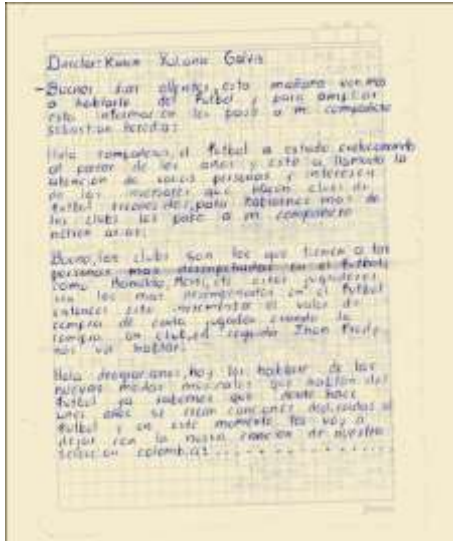 Director: Karen Yuliana Galvis
- Buenos dias oyentes, esta mañana venimos
a hablarle del Futbol y para ampliar
esta informacion les paso a mi compañero
sebastian heredia:
Hola compañeros, el futbol a estado evolucionando
al pasar de los años y esto a llamado la
atencion de varias personas y interesen
de los inversores que hacen clubs de
futbol para hablarnos mas de
los clubs les paso a mi compañero
arias:
Bueno, los clubs son los que tienen a las
personas mas desempeñadas en el futbol
como Ronaldo, Messi, etc estos jugadores
son los mas desempeñados en el futbol
entonces esto incrementar el valor de
compra de cada jugador cuando lo
compra un club, en seguida Jhon
nos va hablar:
Hola hoy les hablare de las
nuevas modas musicales que hablan del
futbol ya sabemos que desde hace
unos años se crean canciones dedicadas al
futbol y en este momento les voy a
dejar con la nueva cancion de nuestra
seleccion colombia: